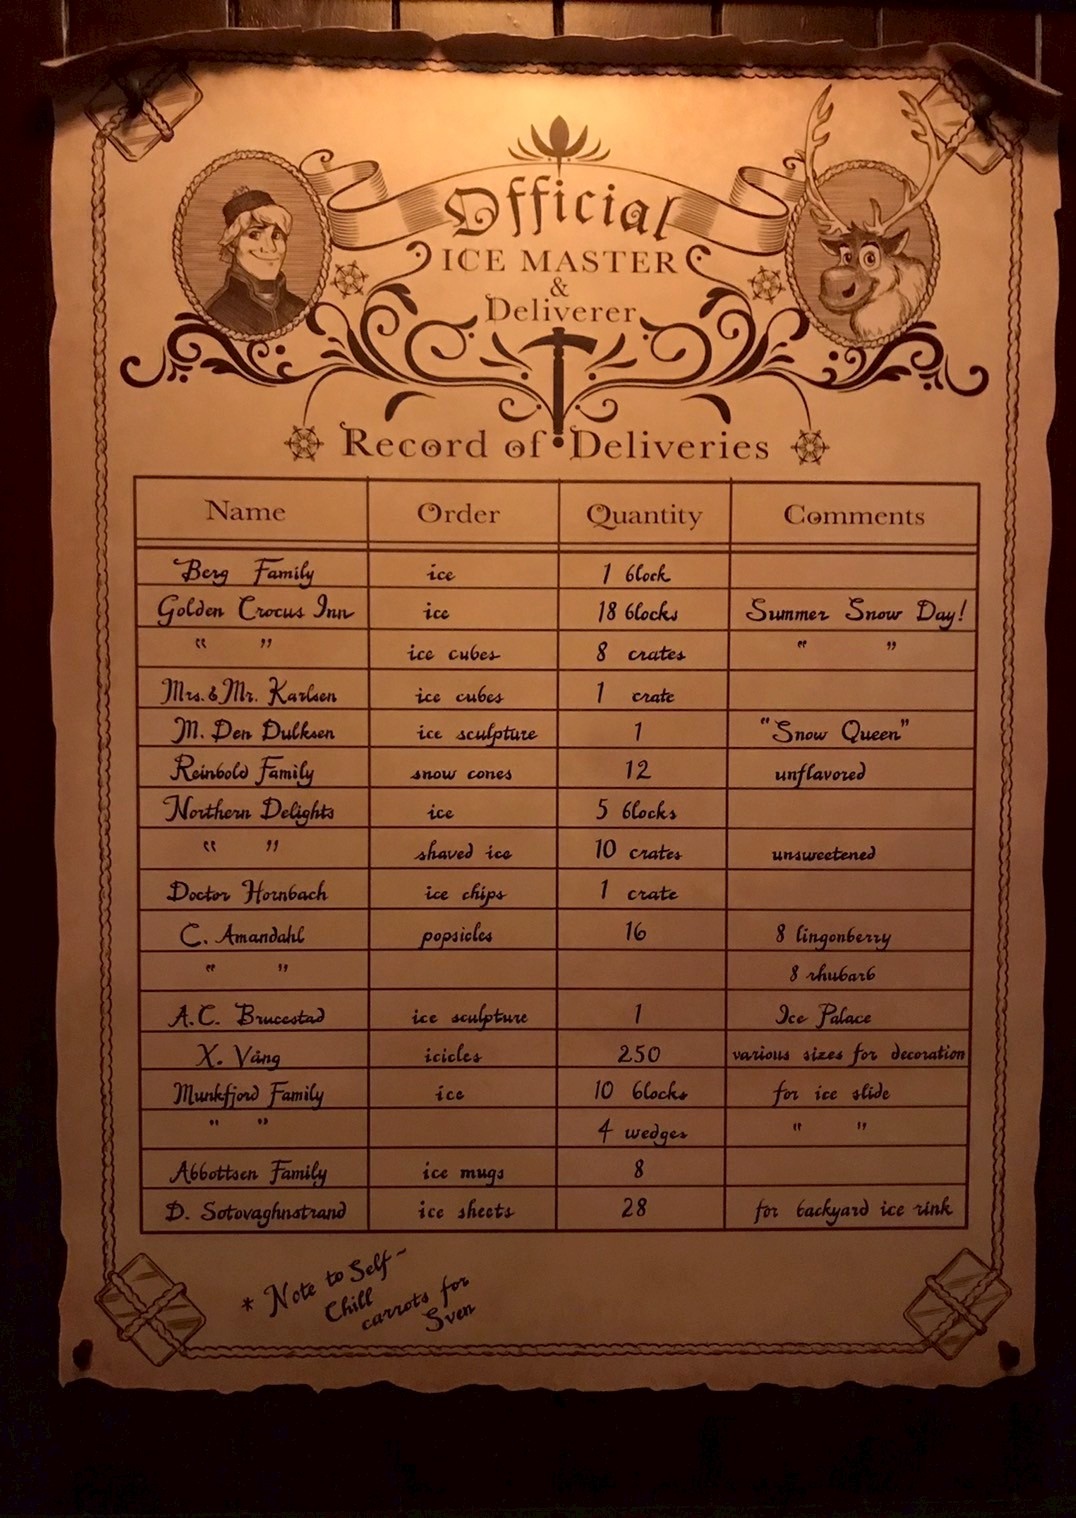 Official
ICE MASTER
&
Deliverer
Record of Deliveries
Name Order Quantity Comments
Berg Family ice 1 block
Golden Crocus Inn ice 18 blocks Summer Snow Day!
“ ” ice cubes 8 crates “ ”
Mrs. & Mr. Karlsen ice cubes 1 crate
M. Den Dulksen ice sculpture 1 “Snow Queen”
Reinbold Family snow cones 12 unflavored
Northern Delights ice 5 blocks
“ ” shaved ice 10 crates unsweetened
Doctor Hornbach ice chips 1 crate
C. Amandahl popsicles 16 8 lingonberry
“ ” 8 rhubarb
A.C. Brucestad ice sculpture 1 Ice Palace
X. Vång icicles 250 various sizes for decoration
Munkfjord Family ice 10 blocks for ice slide
“ ” 4 wedges “ ”
Abbottsen Family ice mugs 8
D. Sotovaghnstrand ice sheets 28 for backyard ice rink
* Note to Self ~
Chill
carrots for
Sven